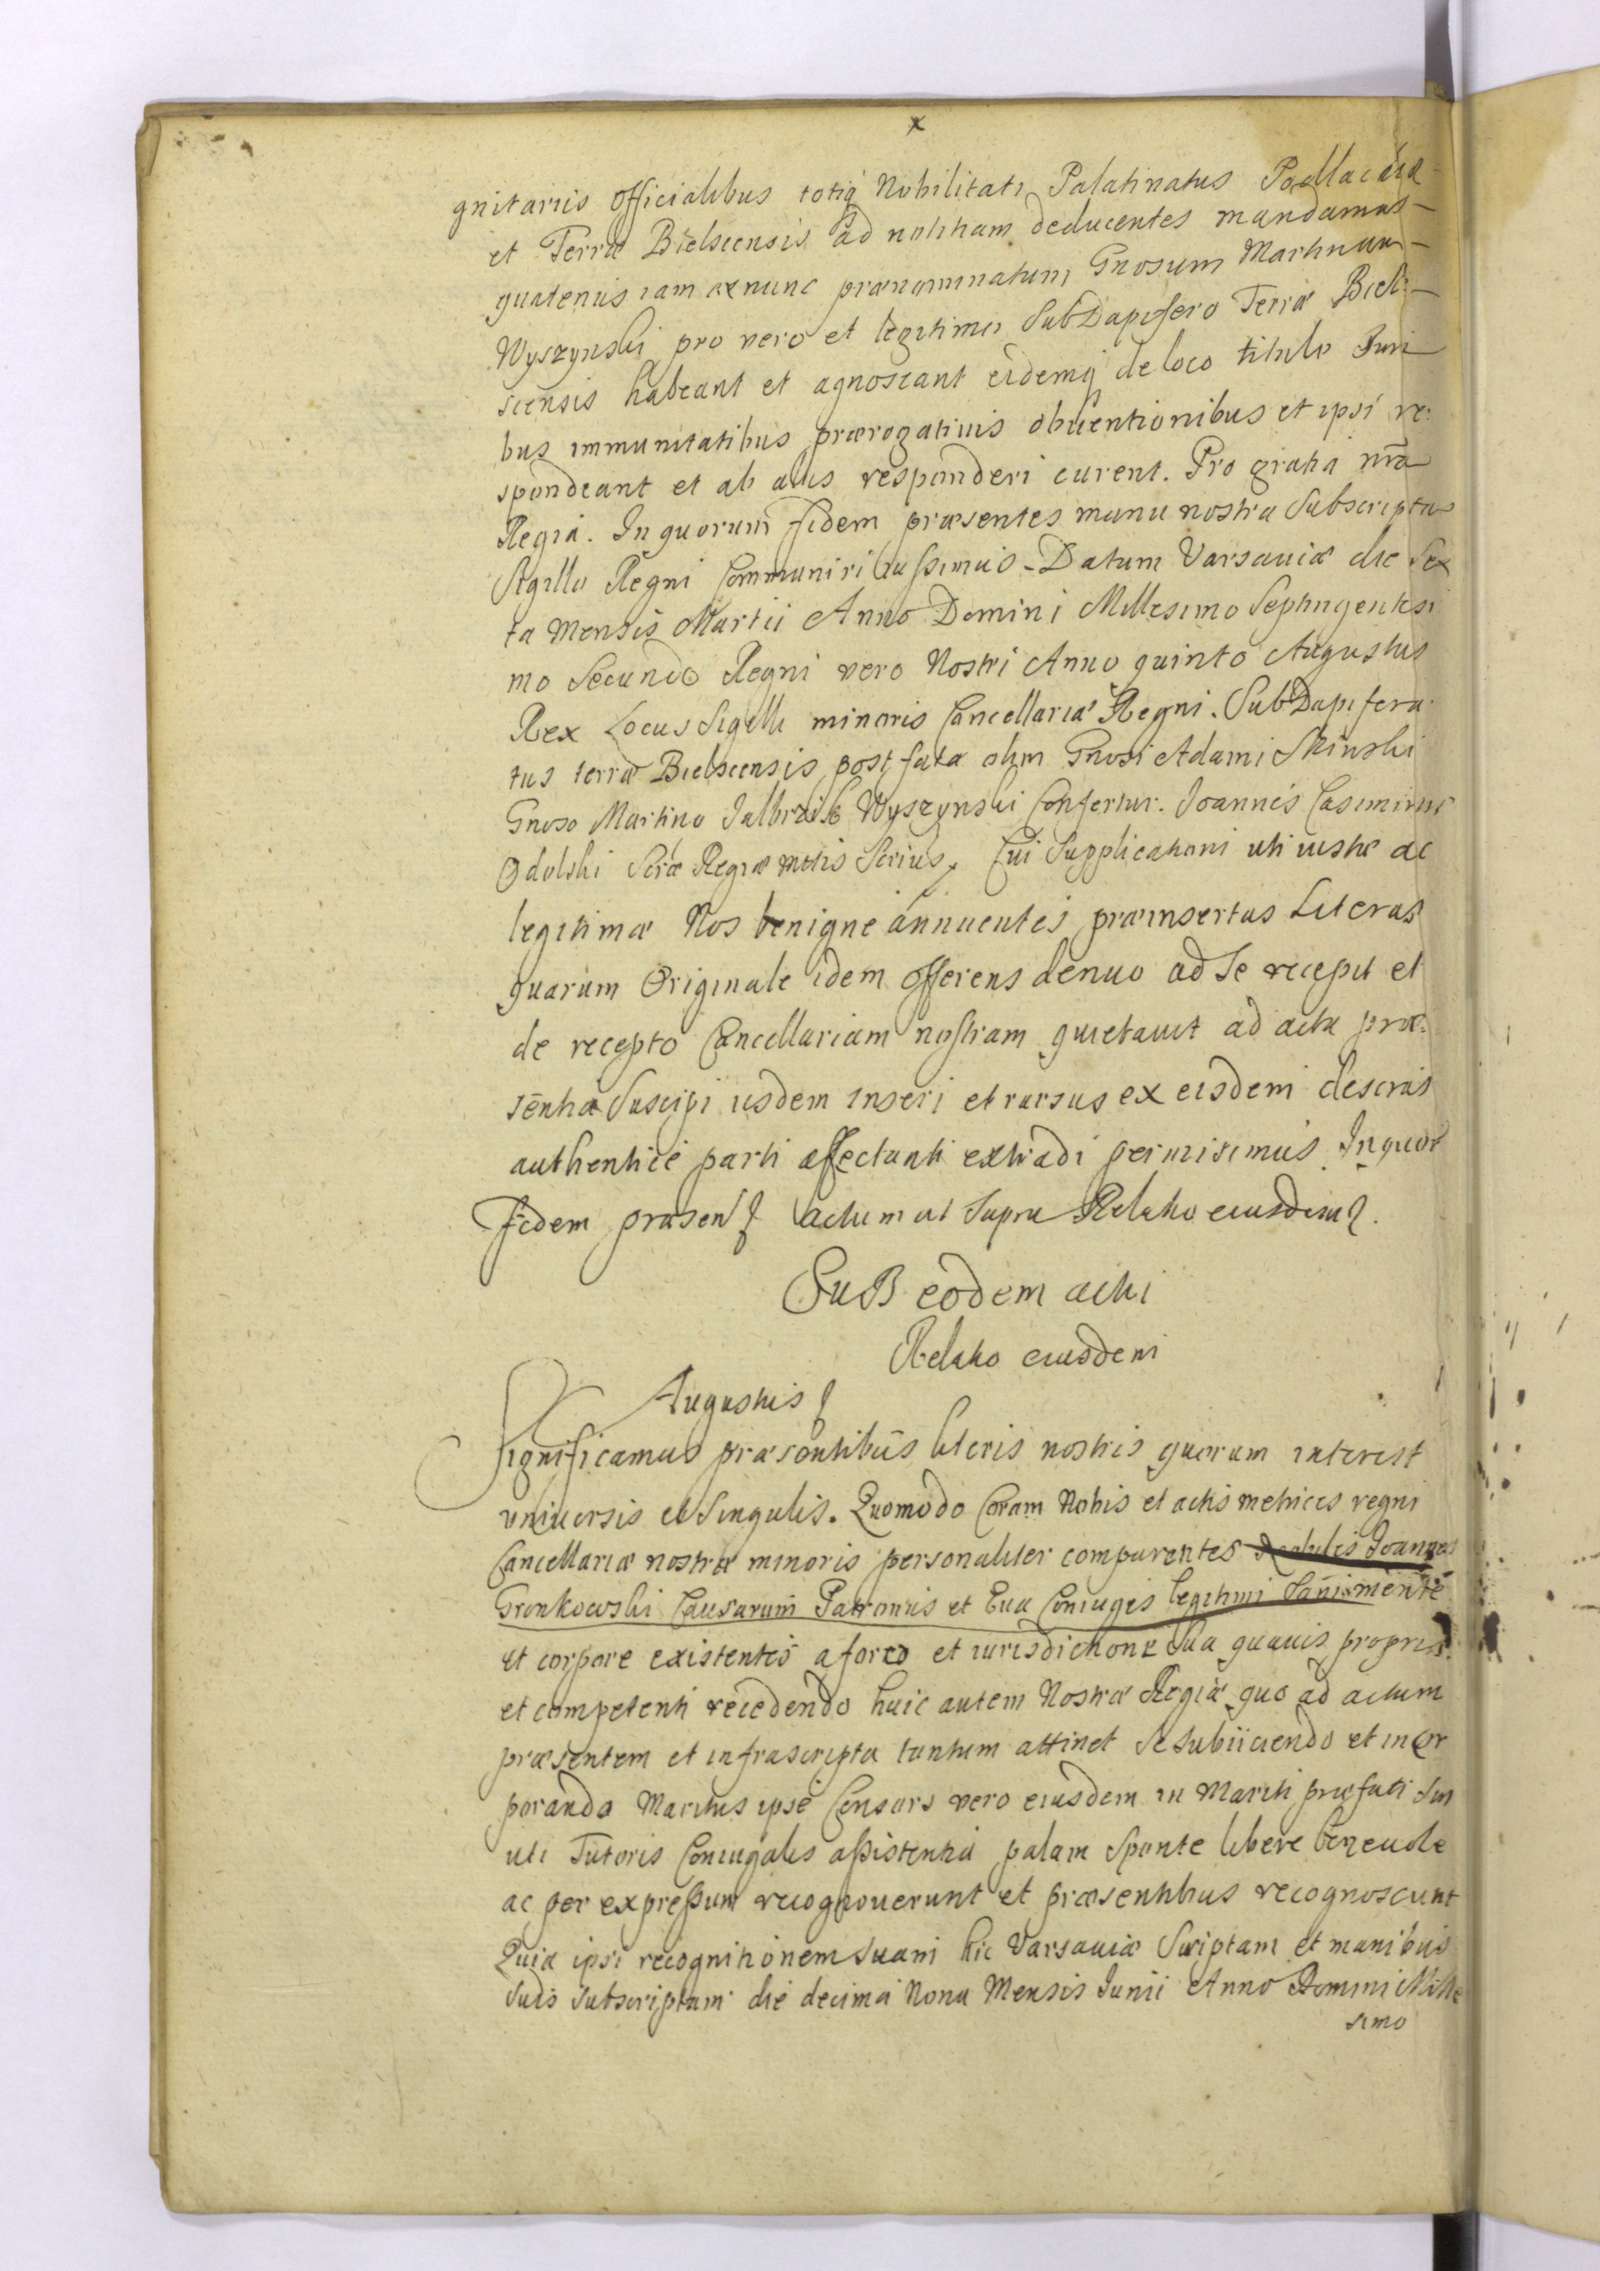 x
gnitariis Officialibus totiq Nobilitati Palatinatus Podlachiæ
et Terræ Bielscensis ad notitiam deducentes mandamus
quatenus iam ex nunc prænominatum Gnosum Martinum
Wyszynski pro vero et legitimo SubDapifero Terræ Biel-
scensis habeant et agnoscant eidemq de loco titulo Juri
bus immunitatibus prærogativis obventionibus et ipsi re-
spondeant et ab aliis responderi curent. Pro gratia nrã
Regia. In quorum fidem præsentes manu nostra Subscriptas
Sigillo Regni Communiri iussimus - Datum Varsaviæ die Sex
ta Mensis Martii Anno Domini Millesimo Septingentesi
mo Secundo Regni vero Nostri Anno quinto Augustus
Rex Locus Sigilli minoris Cancellariæ Regni. SubDapifera
tus terræ Bielscensis post fata olim Gnosi Adami Minski
Gnoso Martino Jalbrzik Wyszynski Confertur. Joannes Casimirus
Odolski Scræ Regiæ Mttis Scrius. Cui Supplicationi uti iustæ ac
legitimæ Nos benigne annuentes præinsertas Literas
quarum Originale idem Offerens denuo ad Se recepit et
de recepto Cancellariam nostram quietavit ad acta præ-
sentia Suscipi iisdem inseri et rursus ex eisdem descrias
authenticè parti affectanti extradi permisimus In quor
fidem præsen Actum ut Supra Relatio eiusdem
SuB eodem acti
Relatio eiusdem
Augustus
Significamus præsentibus literis nostris quorum interest
universis et Singulis. Quomodo Coram Nobis et actis metrices regni
Cancellariæ nostræ minoris personaliter comparentes Joannes
Gronkowski Causarum Patronus et Eva Coniuges legitimi Sani mente
et corpore existentes a foro et iurisdictione Sua quavis propria
et competenti recedendo huic autem Nostræ Regiæ quo ad actum
præsentem et infrascripta tantum attinet Se subiiciendo et incor
porando Maritus ipse Consors vero eiusdem in Mariti præfati Sui
uti Tutoris Coniugalis assistentia palam Sponte libere benevole
ac per expressum recognoverunt et præsentibus recognoscunt
Quia ipsi recognitionem suam hic Varsaviæ Scriptam et manibus
Suis Subscriptam die decima Nona Mensis Junii Anno Domini Mille
simo